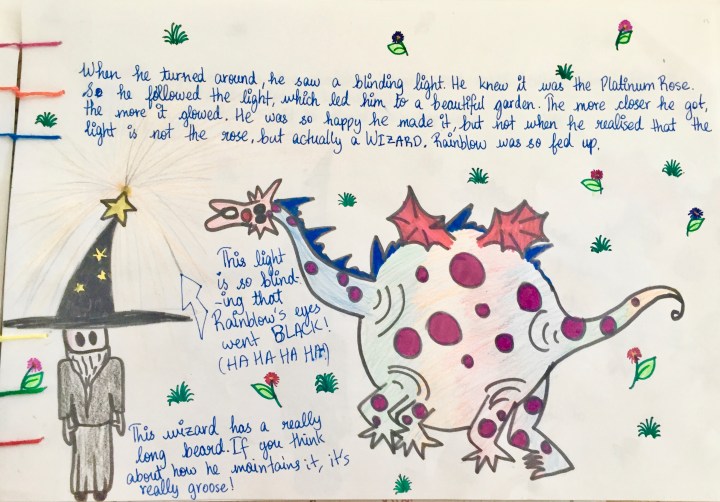 When he turned around, he saw a blinding light. He knew it was the Platinum Rose.
So he followed the light, which led him to a beautiful garden. The more closer he got,
the more it glowed. He was so happy he made it, but not when he realised that the
light is not the rose, but actually a WIZARD. Rainbow was so fed up.
This light
is so blind-
-ing that
Rainbow's eyes
went BLACK!
(HA HA HA HA!)
This wizard has a really
long beard. If you think
about how he maintains it, it's
really groose!